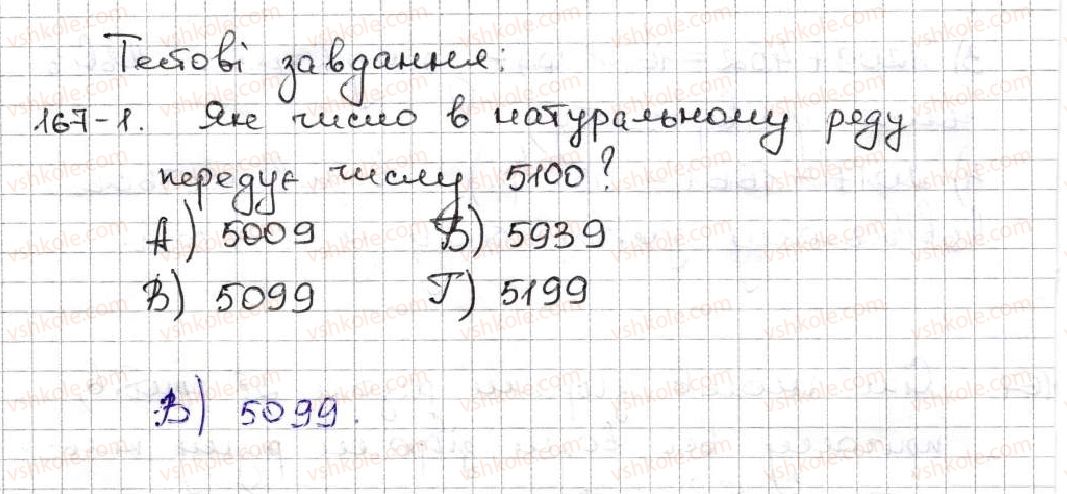 Тестові завдання:
167-1. Яке число в натуральному ряду
передує числу 5100?
А) 5009 Б) 5939
В) 5099 Г) 5199
В) 5099.